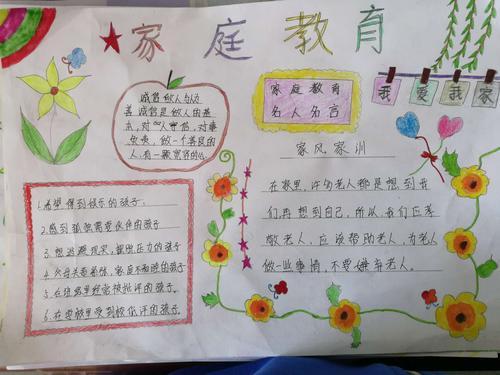 家庭教育
诚信做人与友
善诚信是做人的基
本,对人守信,对事
负责,做一个善良的
人,有一颗宽容的心
家庭教育
名人名言
我爱我家
家风家训
在家里,许多老人都是想到我
们再想到自己,所以我们应孝
敬老人,应该帮助老人,为老人
做一些事情,不要嫌弃老人。
1.希望得到快乐的孩子;
2.感到孤独需要伙伴的孩子
3.想逃避现实,摆脱压力的孩子
4.父母关系紧张,家庭不和睦的孩子
5.在班里经常被批评的孩子。
6.在家里受到被批评的孩子